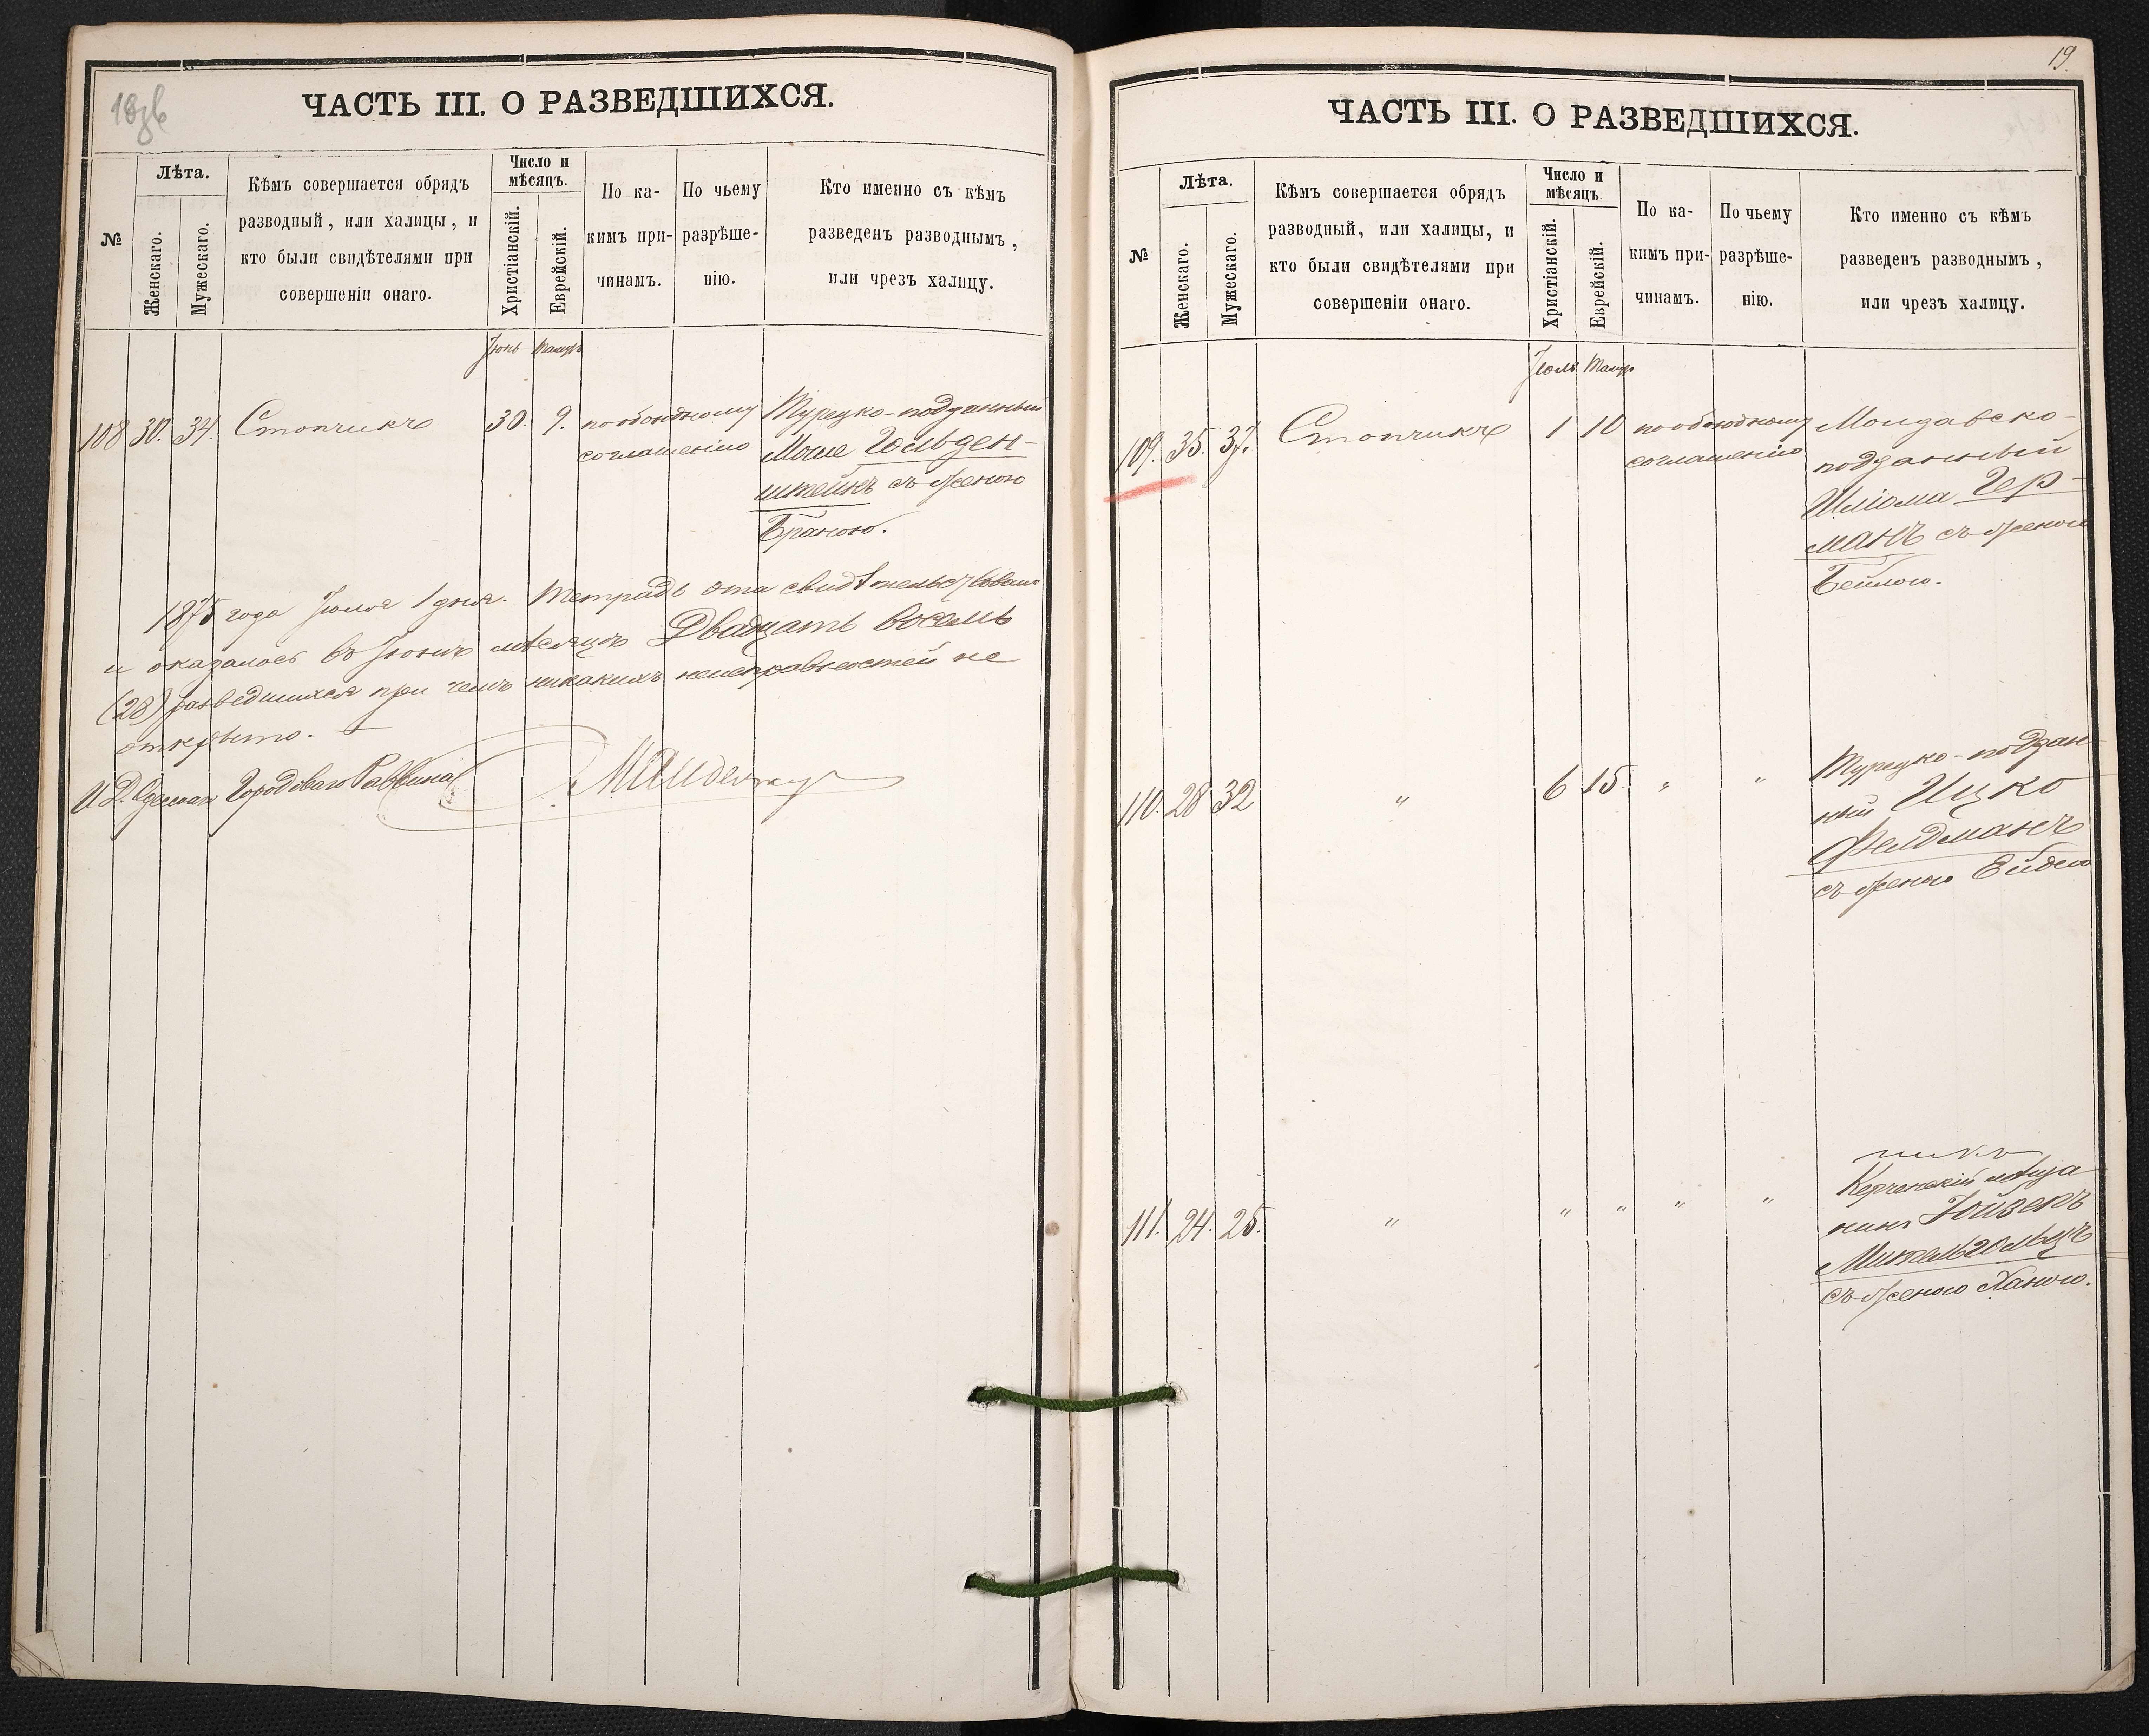 18зв
ЧАСТЬ III. О РАЗВЕДШИХСЯ.
№
Лѣта.
Женскаго.
Мужескаго.
Кѣмъ совершается обрядъ
разводный, или халицы, и
кто были свидѣтелями при
совершеніи онаго.
Число и
мѣсяцъ.
Христіанскій.
Еврейскій.
По ка-
кимъ при-
чинамъ.
По чьему
разрѣше-
нію.
Кто именно съ кѣмъ
разведенъ разводнымъ,
или чрезъ халицу.
Іюнь Тамузъ
108 30. 34. Стопчикъ 30. 9. по обоюдному
соглашенію
Турецко-подданный
Моше Гольден-
штейнъ съ женою
Браною.
1875 года Іюля 1 дня. Тетрадь эта свидѣтельствована
и оказалось въ Іюнѣ мѣсяцѣ Двадцать восемь
(28) разведшихся при чемъ никакихъ неисправностей не
открыто.
И. Д. Одесскаго Городоваго Раввина
19.
ЧАСТЬ III. О РАЗВЕДШИХСЯ.
№
Лѣта.
Женскаго.
Мужескаго.
Кѣмъ совершается обрядъ
разводный, или халицы, и
кто были свидѣтелями при
совершеніи онаго.
Число и
мѣсяцъ.
Христіанскій.
Еврейскій.
По ка-
кимъ при-
чинамъ.
По чьему
разрѣше-
нію.
Кто именно съ кѣмъ
разведенъ разводнымъ,
или чрезъ халицу.
Іюль Тамузъ
109. 35. 37. Стопчикъ 1 10 по обоюдному
соглашенію
Молдавско-
подданный
Шліома Гер-
манъ съ женою
Бейлою.
110. 28 32 " 6 15. " "
Турецко-поддан-
ный Ицко
Фельдманъ
съ женою Ейдею
111. 24. 25. " " " " "
Керченскій мѣща
нинъ Іойзепъ
Мительгольцъ
съ женою Ханою.